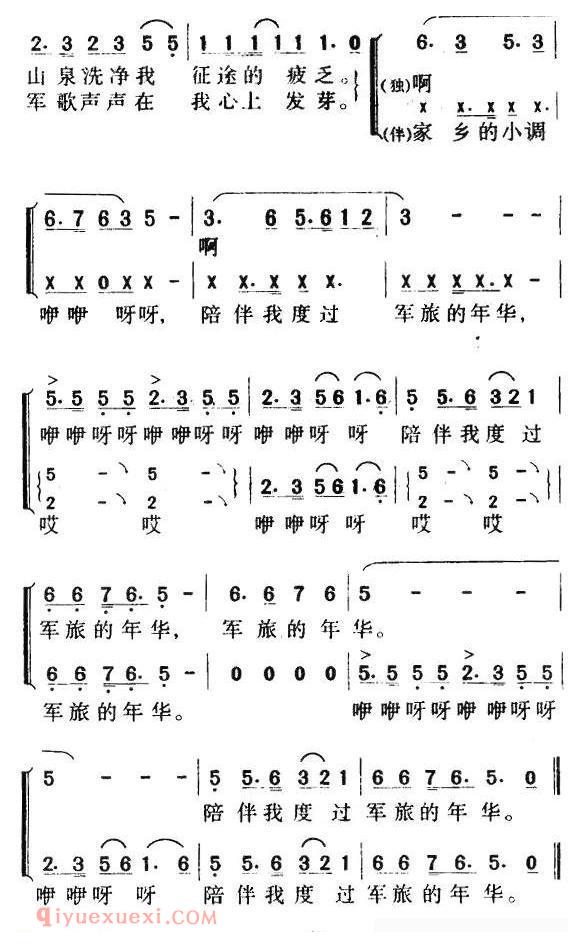 2. 3 2 3 5 5 | 1 1 1 1 1 1. 0 | 6. 3 5. 3
山泉洗净我 征途的 疲乏。 (独)啊
军歌声声在 我心上 发芽。 x x. x x x.
(伴)家 乡的小调
6. 7 6 3 5 - | 3. 6 5. 6 1 2 | 3 - - -
啊
x x 0 x x - | x x. x x x. | x x x x. x -
咿咿 呀呀, 陪伴我度过 军旅的年华,
5. 5 5 5 2. 3 5 5 | 2. 3 5 6 1. 6 | 5 5. 6 3 2 1
咿咿呀呀咿咿呀呀 咿咿呀 呀 陪伴我度过
5 - 5 - | 2. 3 5 6 1. 6 | 5 - 5 -
2 - 2 - 2 - 2 -
哎 哎 咿咿呀 呀 哎 哎
6 6 7 6. 5 - | 6. 6 7 6 | 5 -
军旅的年华, 军旅的年华。
6 6 7 6. 5 - | 0 0 0 0 | 5. 5 5 5 2. 3 5 5
军旅的年华。 咿咿呀呀咿咿呀呀
5 - - - | 5 5. 6 3 2 1 | 6 6 7 6. 5. 0
陪伴我度 过 军旅的年华。
2. 3 5 6 1. 6 | 5 5. 6 3 2 1 | 6 6 7 6. 5. 0
咿咿呀 呀 陪伴我度 过 军旅的年华。
qiyuexuexi.com